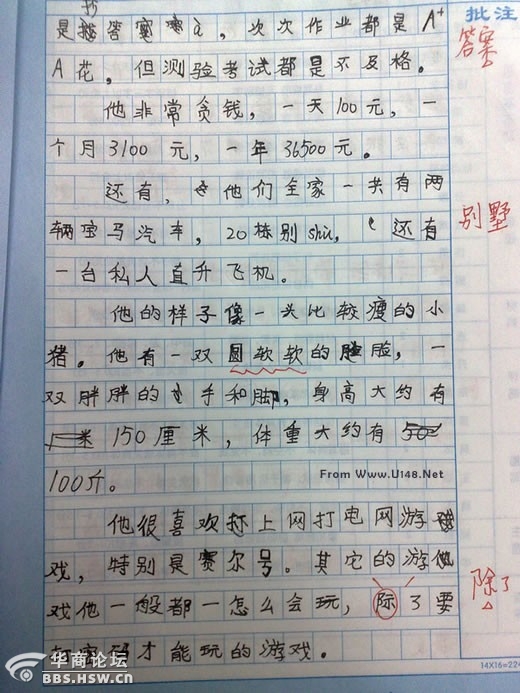 批注
抄
是答案à，次次作业都是A+
答案
A花，但测验考试都是不及格。
他非常贪钱，一天100元，一
个月3100元，一年36500元。
还有，他们全家一共有两
辆宝马汽车，20栋别shù，还有
别墅
一台私人直升飞机。
他的样子像一头比较瘦的小
猪。他有一双圆软软的脸，一
双胖胖的手和脚，身高大约有
150厘米，体重大约有
100斤。
From Www.U148.Net
他很喜欢上网打电网游
戏，特别是赛尔号。其它的游
戏他一般都一怎么会玩，际了要
除了
才能玩的游戏。
14X16=224
华商论坛
BBS.HSW.CN